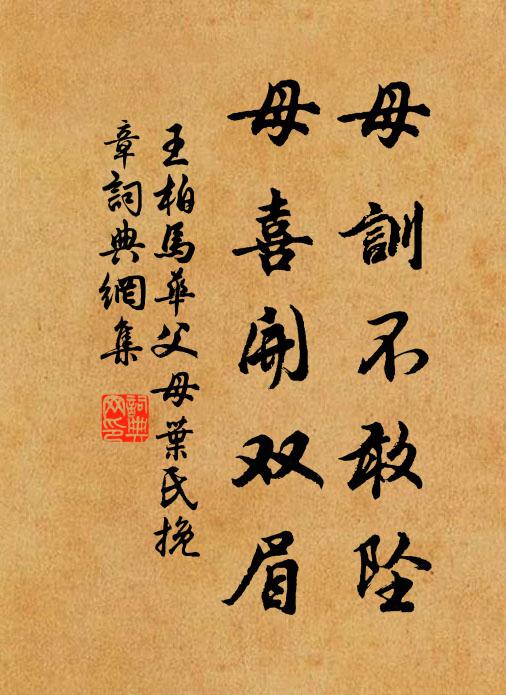 母訓不敢坠
母喜開双眉
王柏馬華父母葉氏挽
章詞典網集
詞典
网印